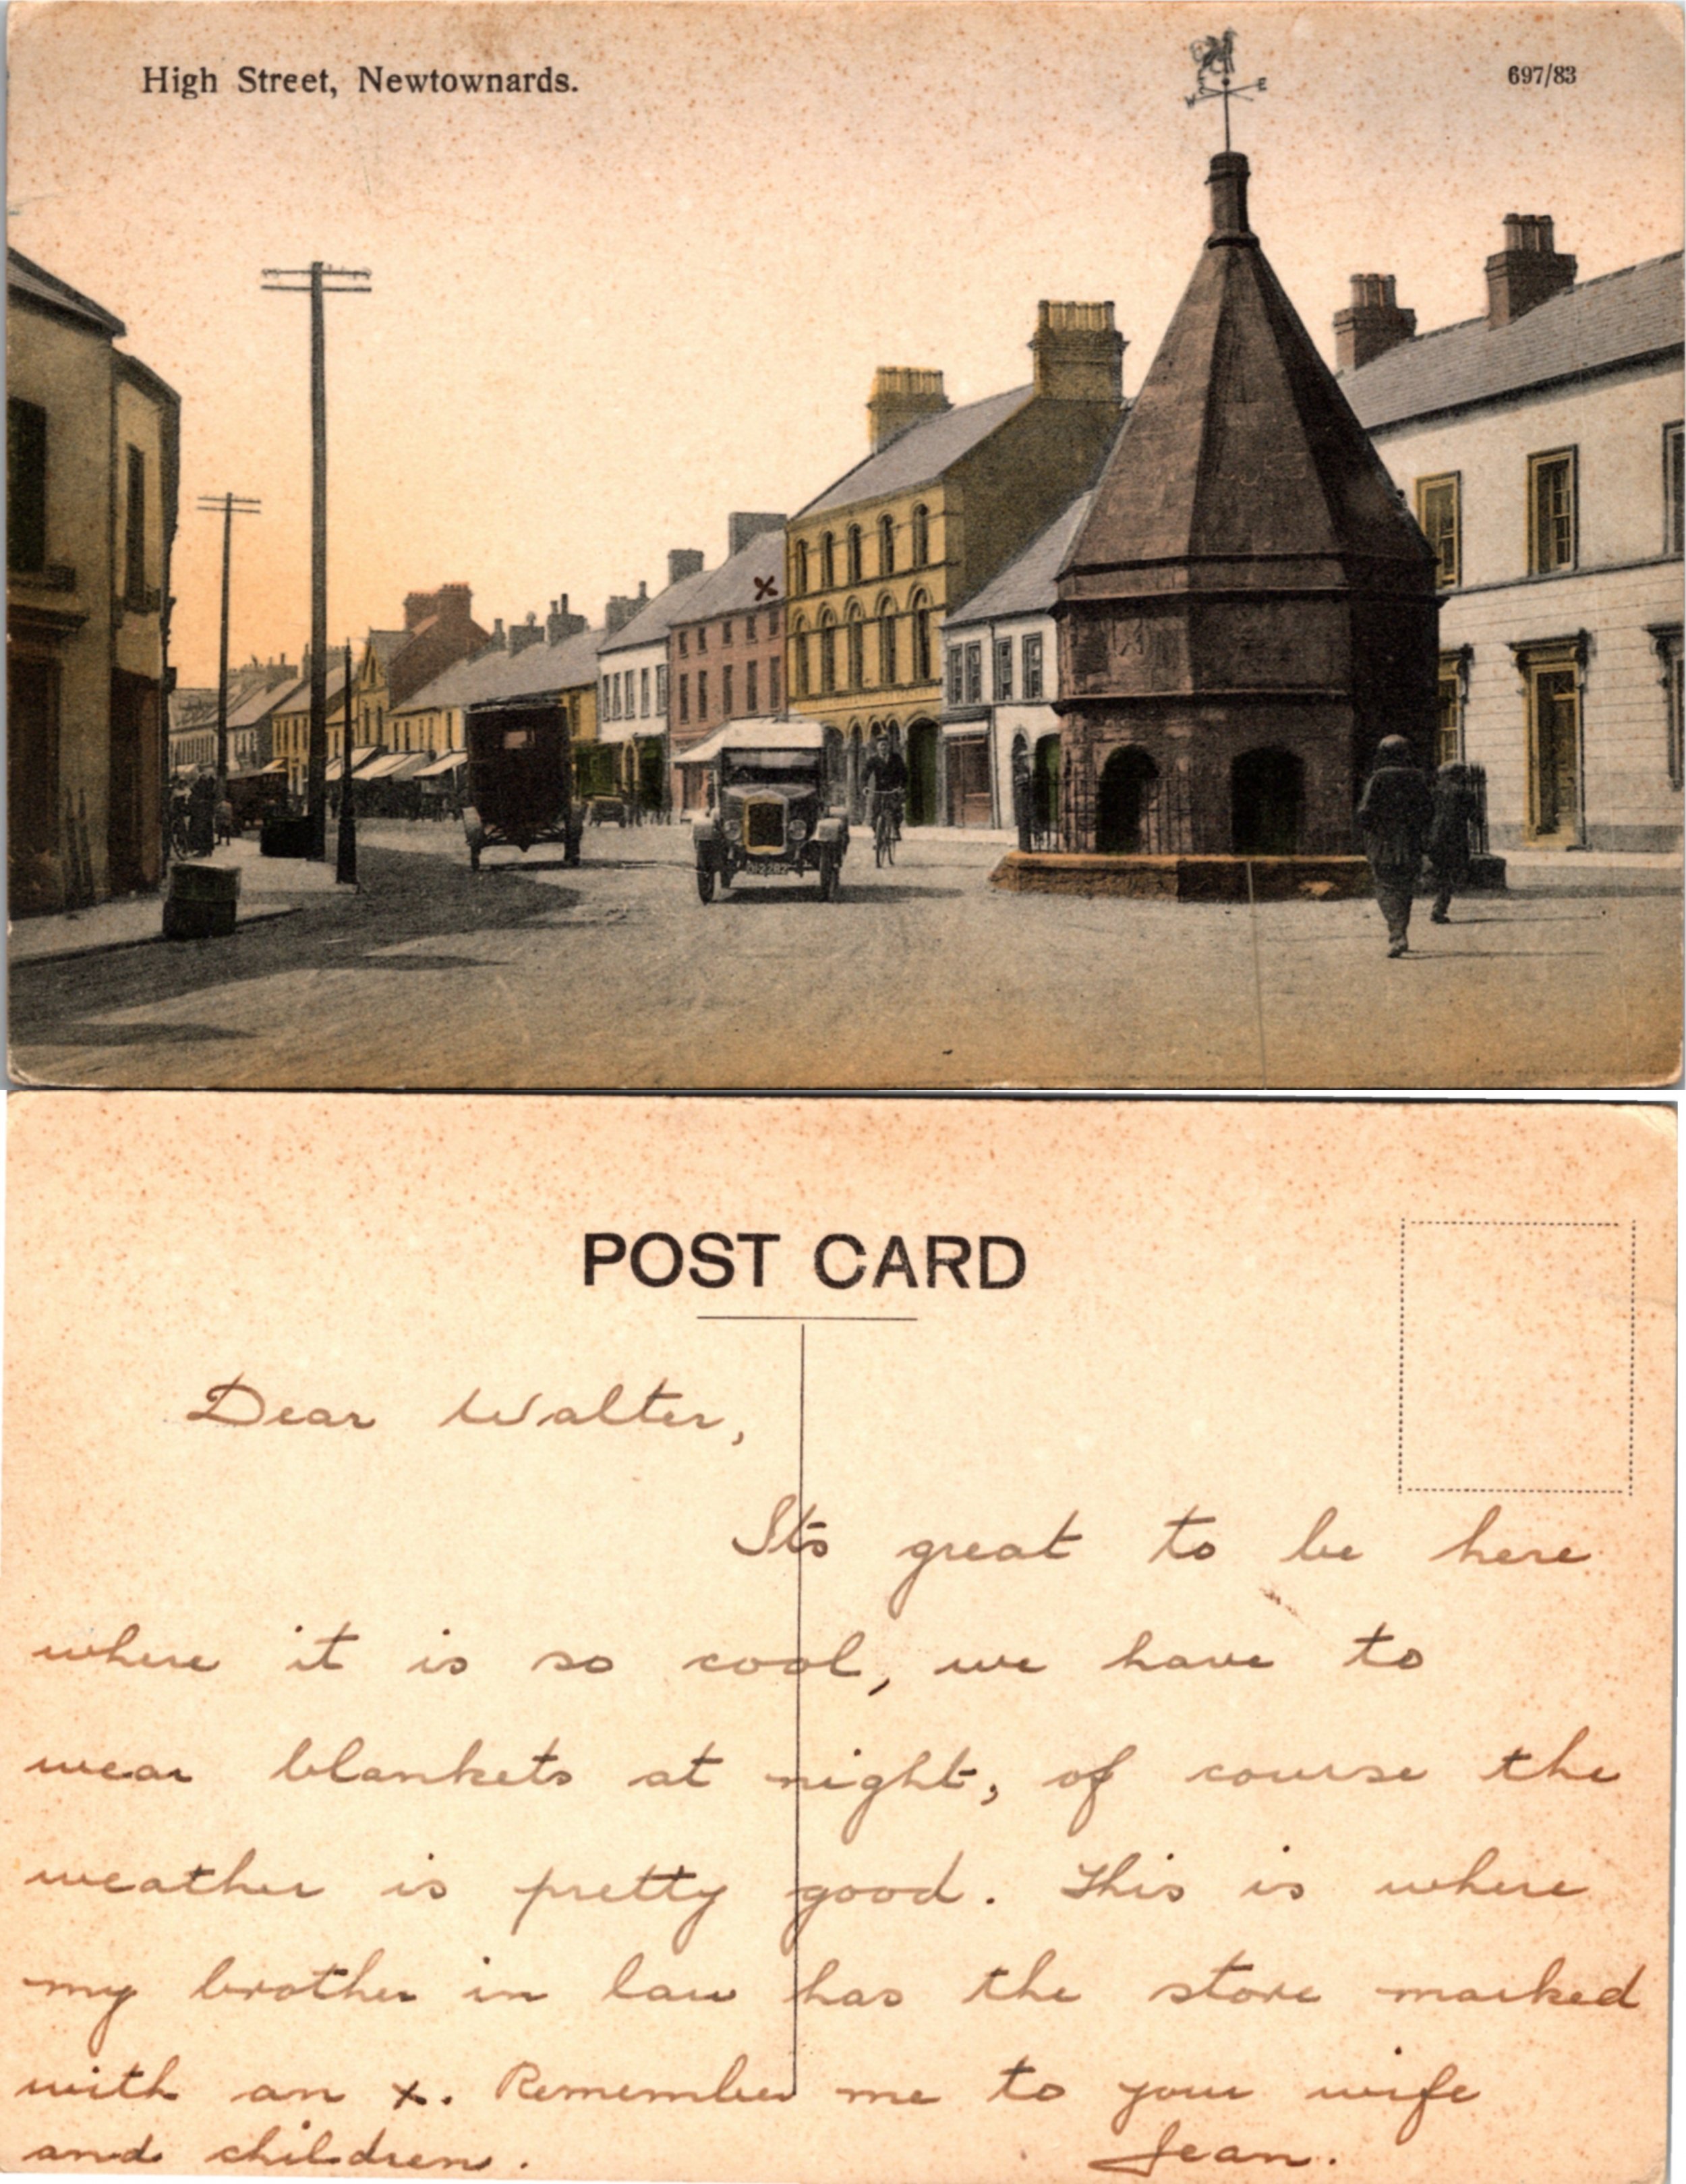 High Street, Newtownards.
697/83
W E
POST CARD
Dear Walter,
Its great to be here
where it is so cool, we have to
wear blankets at night, of course the
weather is pretty good. This is where
my brother in law has the store marked
with an x. Remember me to your wife
and children. Jean.